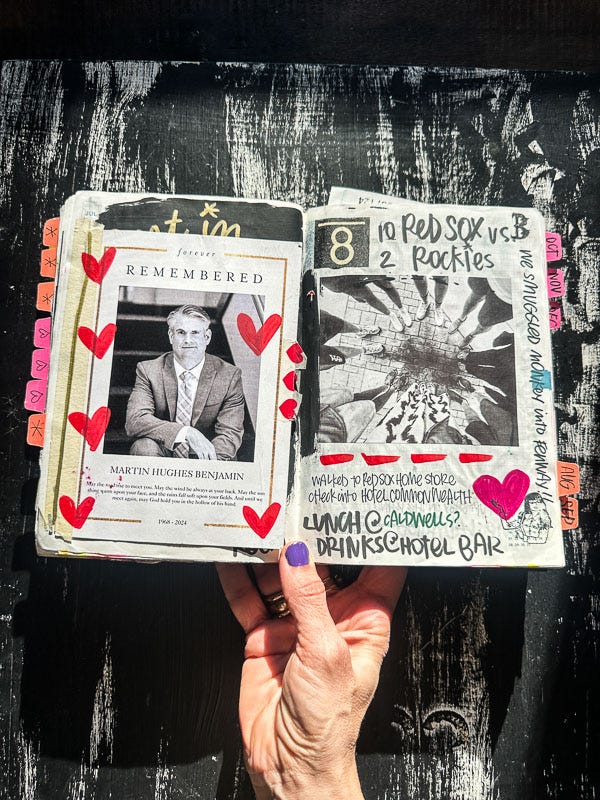 JUL
forever
REMEMBERED
MARTIN HUGHES BENJAMIN
May the road rise to meet you. May the wind be always at your back. May the sun
shine warm upon your face, and the rains fall soft upon your fields. And until we
meet again, may God hold you in the hollow of his hand.
1968 - 2024
8
10 RED SOX vs. B
2 ROCKIES
WE SMUGGLED MONKEY INTO FENWAY!!
WALKED TO RED SOX HOME STORE
CHECK INTO HOTEL COMMONWEALTH
LUNCH @ CALDWELLS?
DRINKS @ HOTEL BAR
OCT
NOV
DEC
AUG
SEP